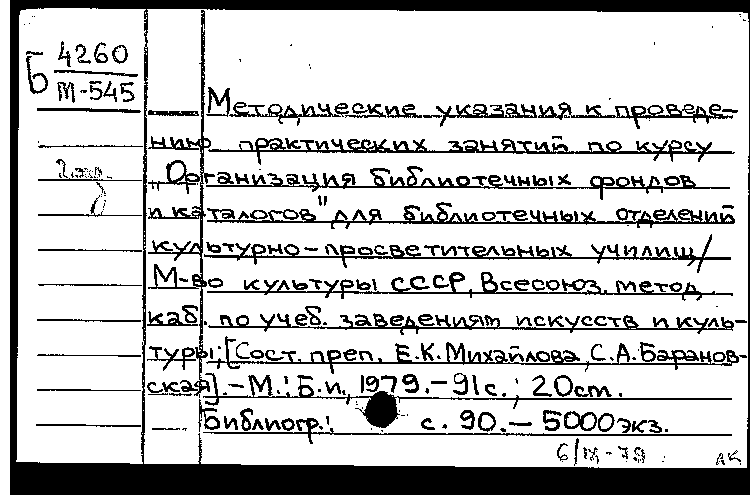 Б 4260
М-545
Методические указания к проведе-
нию практических занятий по курсу
„Организация библиотечных фондов
и каталогов" для библиотечных отделений
культурно-просветительных училищ/
М-во культуры СССР, Всесоюз. метод.
каб. по учеб. заведениям искусств и куль-
туры; [Сост. преп. Е.К.Михайлова, С.А.Баранов-
ская]. - М.: Б.и., 1979. - 91с.; 20см.
Библиогр.: с. 90. - 5000экз.
6/IX-79 АК